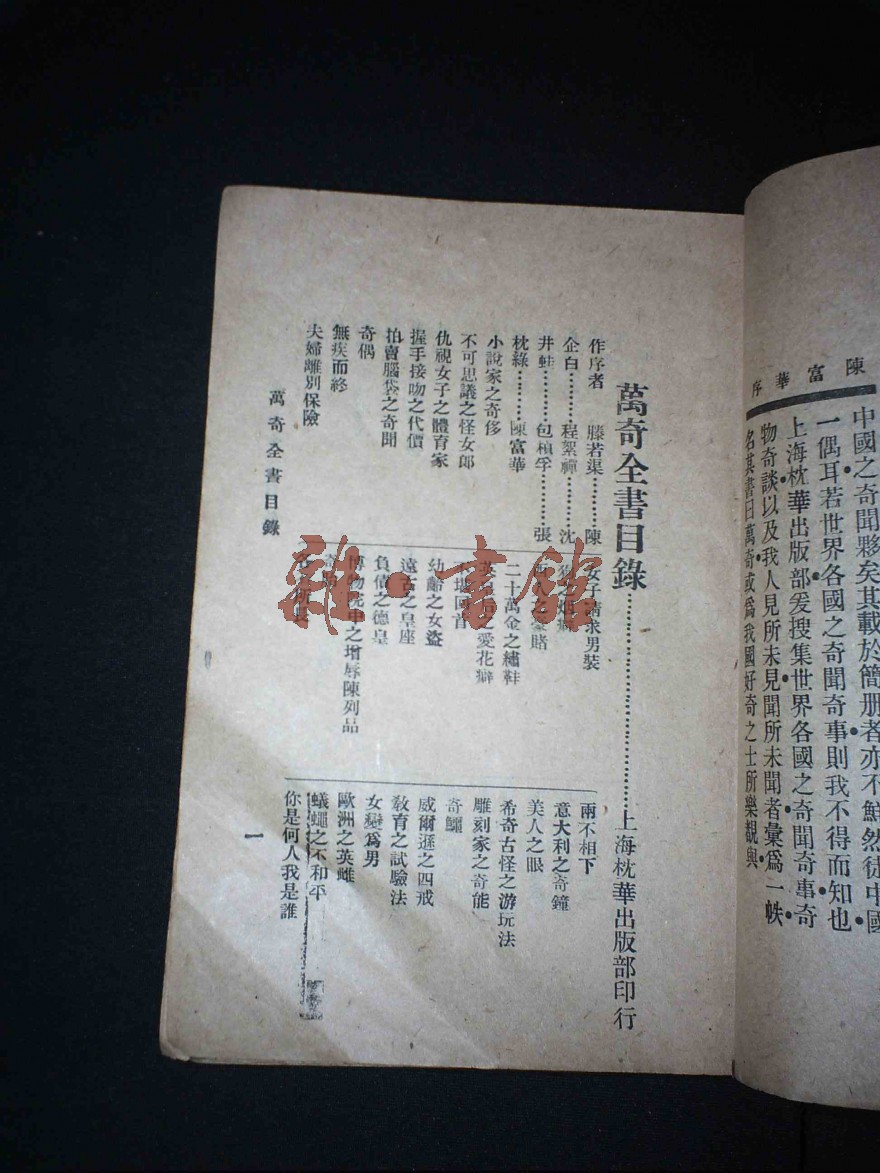 陳富華序
中國之奇聞夥矣其載於簡册者亦不鮮然徒中國
一偶耳若世界各國之奇聞奇事則我不得而知也
上海枕華出版部爰搜集世界各國之奇聞奇事奇
物奇談以及我人見所未見聞所未聞者彙爲一帙
名其書曰萬奇或爲我國好奇之士所樂覩與
萬奇全書目錄…………上海枕華出版部印行
作序者 滕若渠………陳
企白………程絮禪………沈
井蛙………包楨孚………張
枕綠………陳富華
小說家之奇侈
不可思議之怪女郎
仇視女子之體育家
握手接吻之代價
拍賣腦袋之奇聞
奇偶
無疾而終
夫婦離別保險
女子請求男裝
之烟癖
賭
二十萬金之繡鞋
英皇后之愛花癖
回首
幼齡之女盜
遠古之皇座
負債之德皇
博物院中之增辱陳列品
奇
各 所長
兩不相下
意大利之奇鐘
美人之眼
希奇古怪之游玩法
雕刻家之奇能
奇鱷
威爾遜之四戒
敎育之試驗法
女變爲男
歐洲之英雌
蟻蠅之不和平
你是何人我是誰
萬奇全書目錄
一
雜·書館